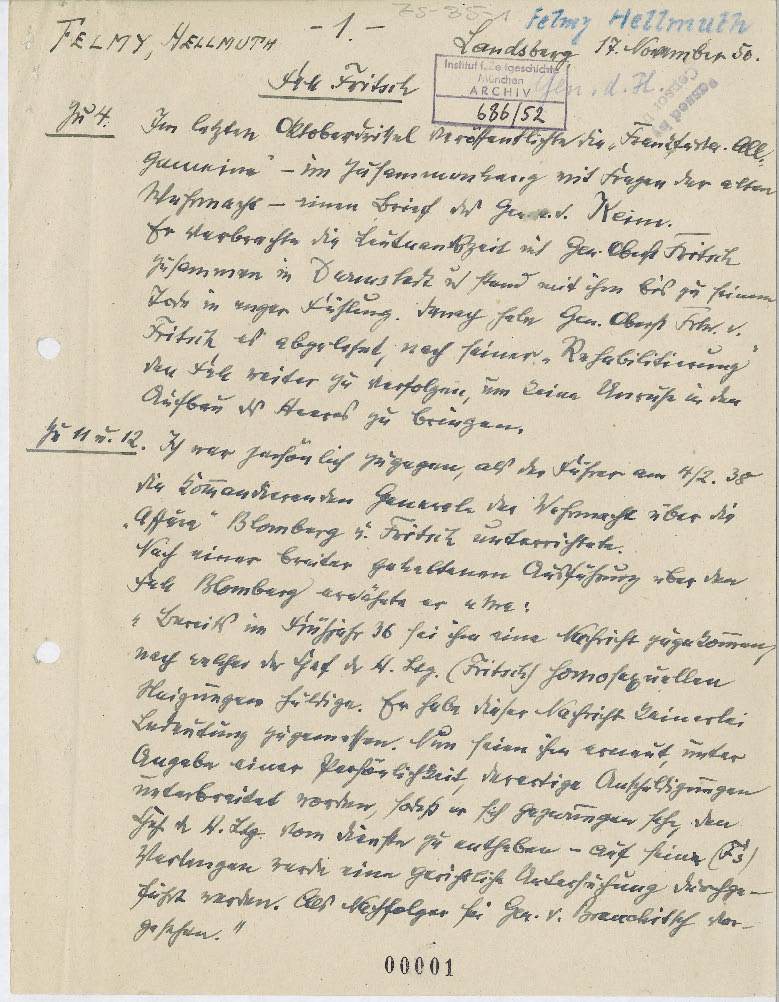 ZS-35-1
Felmy Hellmuth
- 1. -
FELMY, HELLMUTH
Landsberg, 17. November 50.
Gen. d. Fl.
Institut f. Zeitgeschichte
München
ARCHIV
686/52
Passed by
Censor
Fall Fritsch
Zu 4. Im letzten Oktoberdrittel veröffentlichte die „Frankfurter All-
gemeine" – im Zusammenhang mit Fragen der alten
Wehrmacht – einen Brief des Gen. a. d. Keim.
Er verbrachte die Leutnantszeit mit Gen. Oberst Fritsch
zusammen in Darmstadt u. stand mit ihm bis zu seinem
Tode in enger Fühlung. Danach habe Gen. Oberst Frhr. v.
Fritsch es abgelehnt, nach seiner „Rehabilitierung"
den Fall weiter zu verfolgen, um keine Unruhe in den
Aufbau des Heeres zu bringen.
Zu 11 u. 12. Ich war persönlich zugegen, als der Führer am 4/2. 38
die Kommandierenden Generale der Wehrmacht über die
„Affäre" Blomberg u. Fritsch unterrichtete.
Nach einer breiter gehaltenen Ausführung über den
Fall Blomberg erwähnte er etwa:
„Bereits im Frühjahr 36 sei ihm eine Nachricht zugekommen,
nach welcher der Chef der H. Ltg. (Fritsch) homosexuellen
Neigungen huldige. Er habe dieser Nachricht keinerlei
Bedeutung zugemessen. Nun seien ihm erneut, unter
Angabe einer Persönlichkeit, derartige Anschuldigungen
unterbreitet worden, sodaß er sich gezwungen sehe, den
Chef d. H. Ltg. vom Dienste zu entheben – auf seine (F's)
Verlangen werde eine gerichtliche Untersuchung durchge-
führt werden. Als Nachfolger sei Gen. v. Brauchitsch vor-
gesehen."
00001